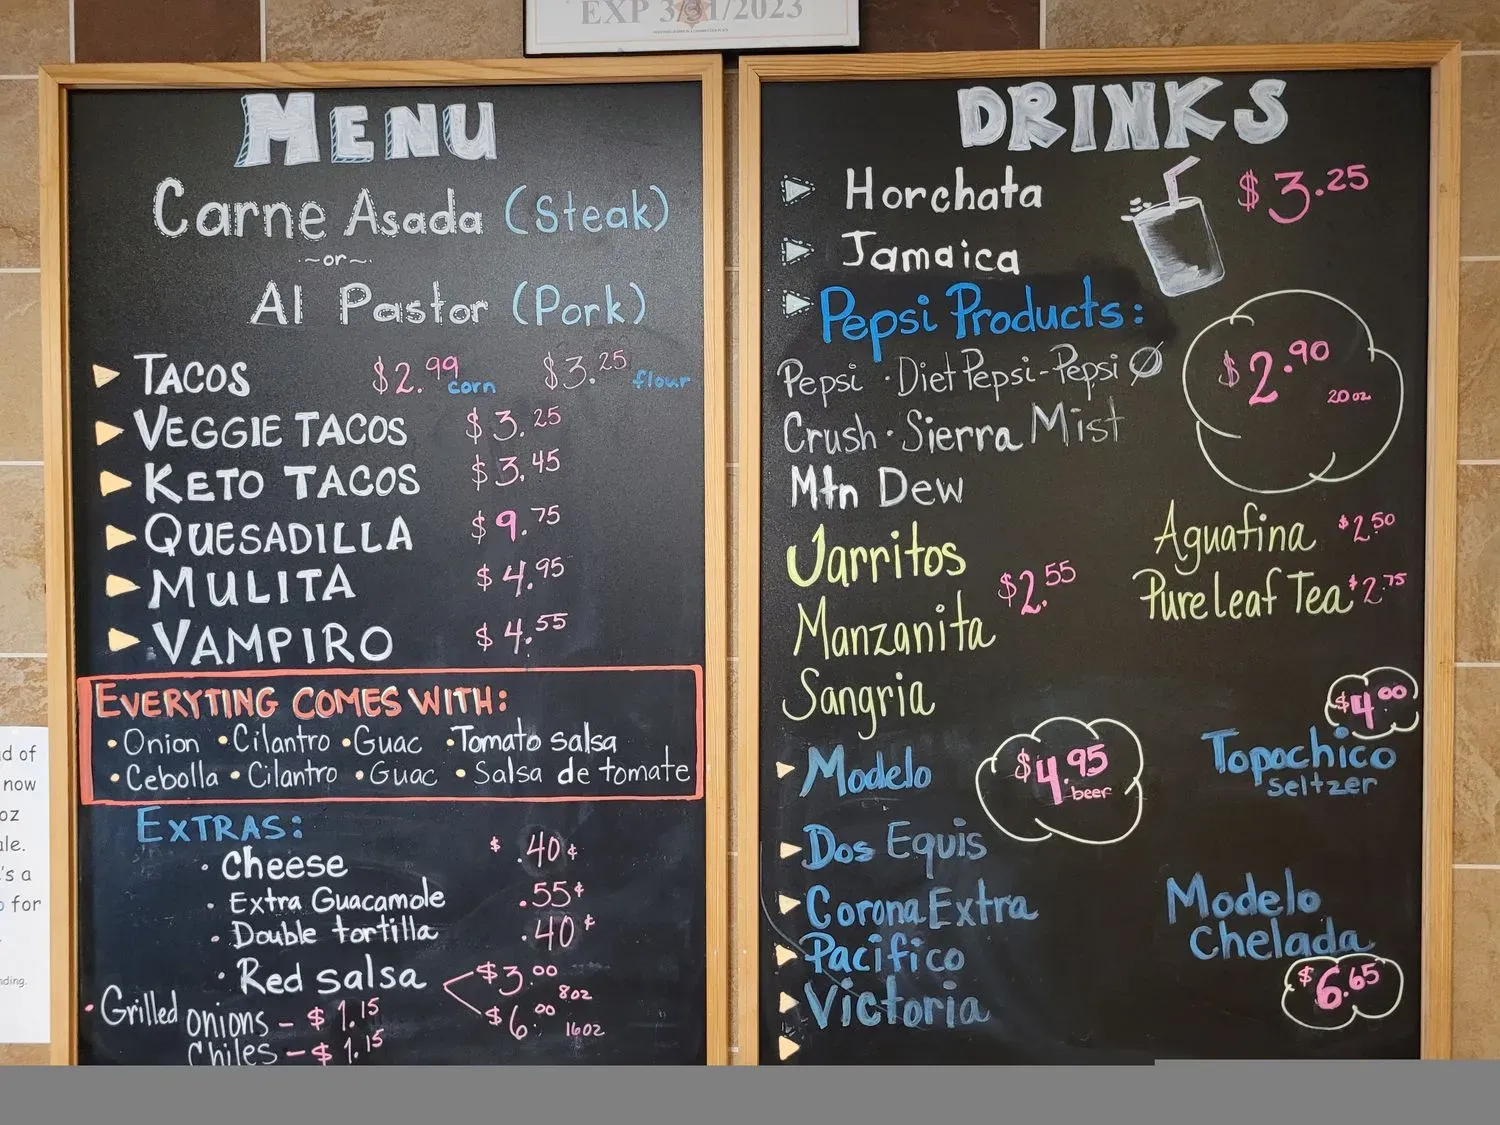 EXP 3/31/2023
MENU
Carne Asada (Steak)
~or~
Al Pastor (Pork)
TACOS $2.99 corn $3.25 flour
VEGGIE TACOS $3.25
KETO TACOS $3.45
QUESADILLA $9.75
MULITA $4.95
VAMPIRO $4.55
EVERYTING COMES WITH:
•Onion •Cilantro •Guac •Tomato salsa
•Cebolla •Cilantro •Guac •Salsa de tomate
EXTRAS:
•Cheese $.40¢
•Extra Guacamole .55¢
•Double tortilla .40¢
•Red salsa $3.00 8oz
$6.00 16oz
•Grilled onions - $1.15
Chiles - $1.15
DRINKS
Horchata $3.25
Jamaica
Pepsi Products:
Pepsi · Diet Pepsi - Pepsi Ø
Crush · Sierra Mist
Mtn Dew
$2.90
20oz
Jarritos
Manzanita $2.55
Sangria
Aguafina $2.50
Pureleaf Tea $2.75
Modelo $4.95
beer
Dos Equis
Corona Extra
Pacifico
Victoria
$4.00
Topochico
Seltzer
Modelo
Chelada
$6.65
d of
now
oz
le.
's a
for
nding.